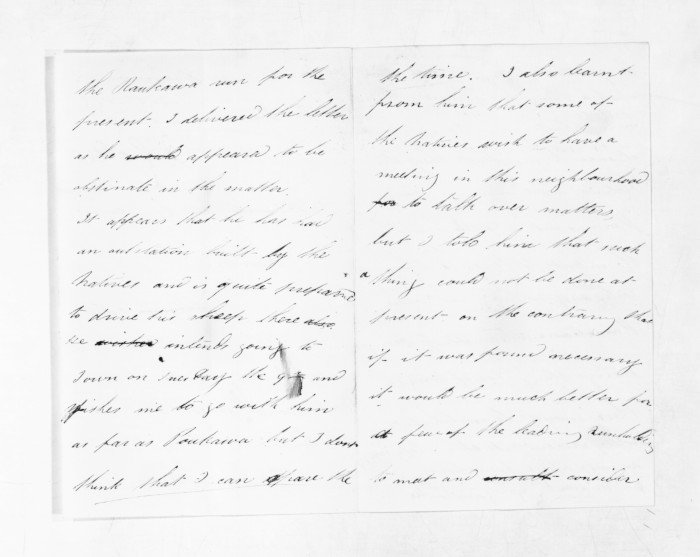 the Raukawa run for the
present. I delivered the letter
as he would appeard to be
obstinate in the matter.
It appears that he has had
an outstation built by the
Natives and is quite prepared
to drive his sheep there also
he wishes intends going to
Town on Tuesday the and
wishes me to go with him
as far as Poukawa but I dont
think that I can spare the
the time. I also learnt
from him that some of
the Natives wish to have a
meeting in this neighbourhood
for to talk over matters,
but I told him that such
a thing could not be done at
present on the contrary that
if it was found necessary
it would be much better for
a few of the leading
to meet and consult consider